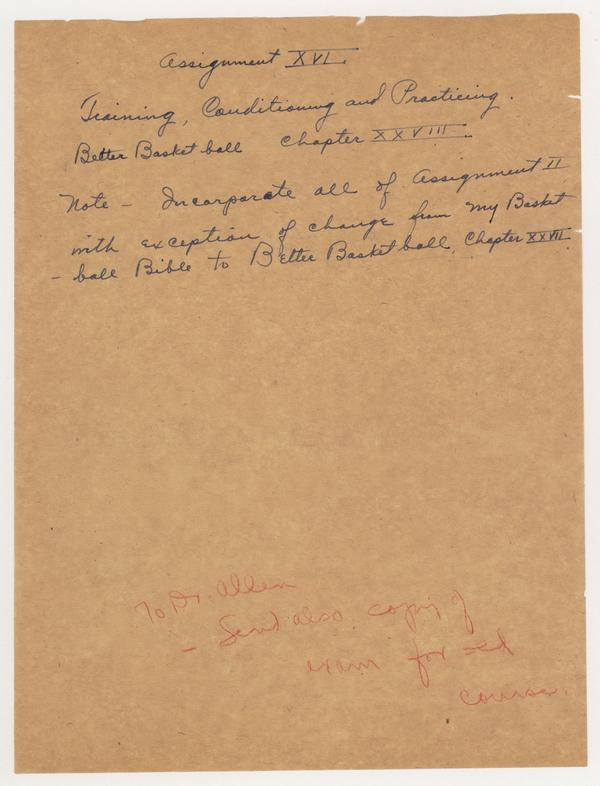 Assignment XVI.
Training, Conditioning and Practicing.
Better Basket ball Chapter XXVIII.
Note - Incorporate all of Assignment II
with exception of change from my Basket
- ball Bible to Better Basket ball, Chapter XXVII
To Dr. Allen
- Send also copy of
exam for
course.